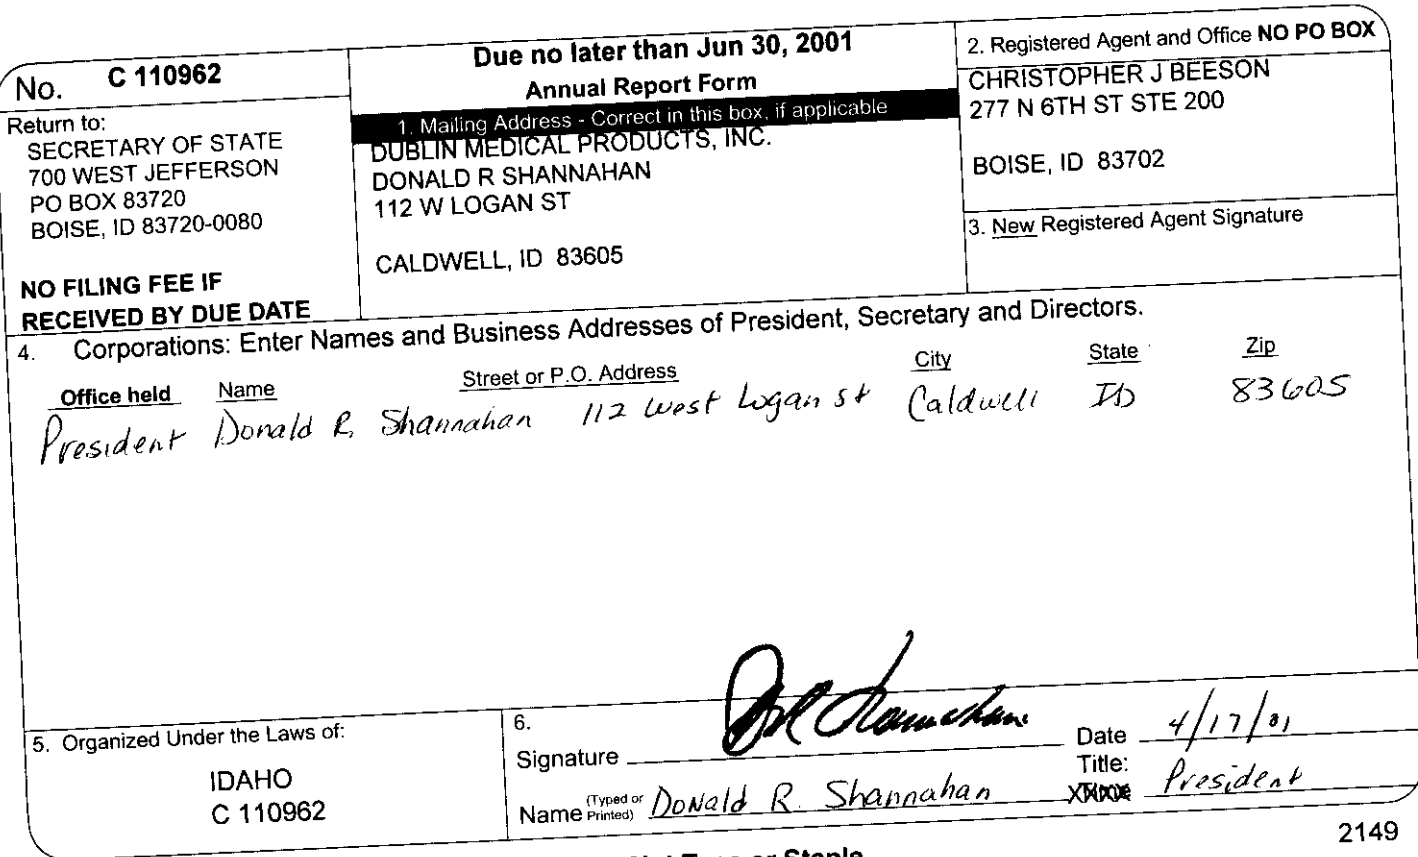 No. C 110962
Return to:
SECRETARY OF STATE
700 WEST JEFFERSON
PO BOX 83720
BOISE, ID 83720-0080
NO FILING FEE IF
RECEIVED BY DUE DATE
Due no later than Jun 30, 2001
Annual Report Form
1. Mailing Address - Correct in this box, if applicable
DUBLIN MEDICAL PRODUCTS, INC.
DONALD R SHANNAHAN
112 W LOGAN ST
CALDWELL, ID 83605
2. Registered Agent and Office NO PO BOX
CHRISTOPHER J BEESON
277 N 6TH ST STE 200
BOISE, ID 83702
3. New Registered Agent Signature
4. Corporations: Enter Names and Business Addresses of President, Secretary and Directors.
Office held Name Street or P.O. Address City State Zip
President Donald R. Shannahan 112 West Logan St Caldwell ID 83605
5. Organized Under the Laws of:
IDAHO
C 110962
6.
Signature Date 4/17/01
Name (Typed or Printed) Donald R. Shannahan Title: President
2149
or Staple